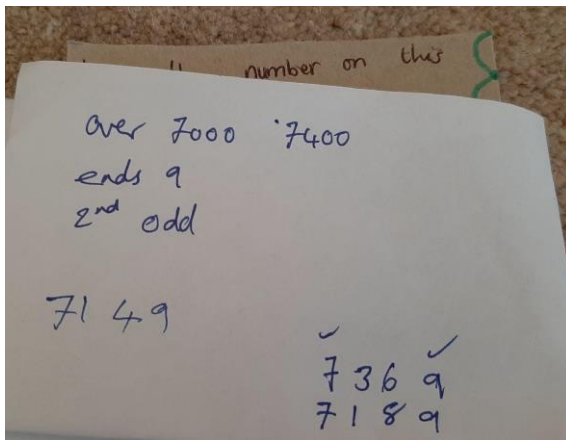 number on this
over 7000 7400
ends 9
2nd odd
7149
7369
7189